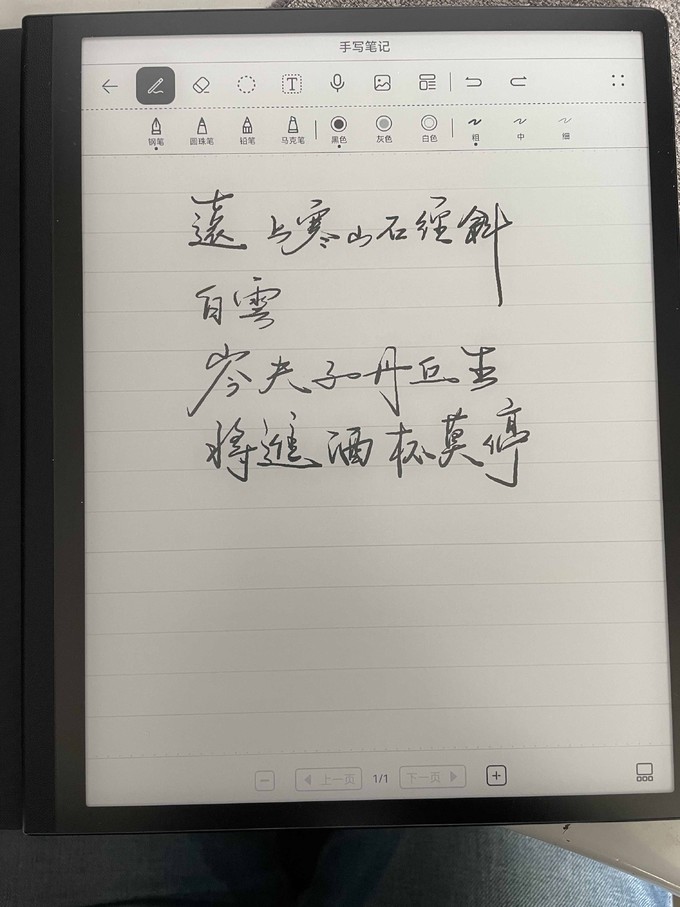 手写笔记
T
钢笔 圆珠笔 铅笔 马克笔 黑色 灰色 白色 粗 中 细
遠上寒山石經斜
白雲
岑夫子丹丘生
將進酒杯莫停
上一页 1/1 下一页